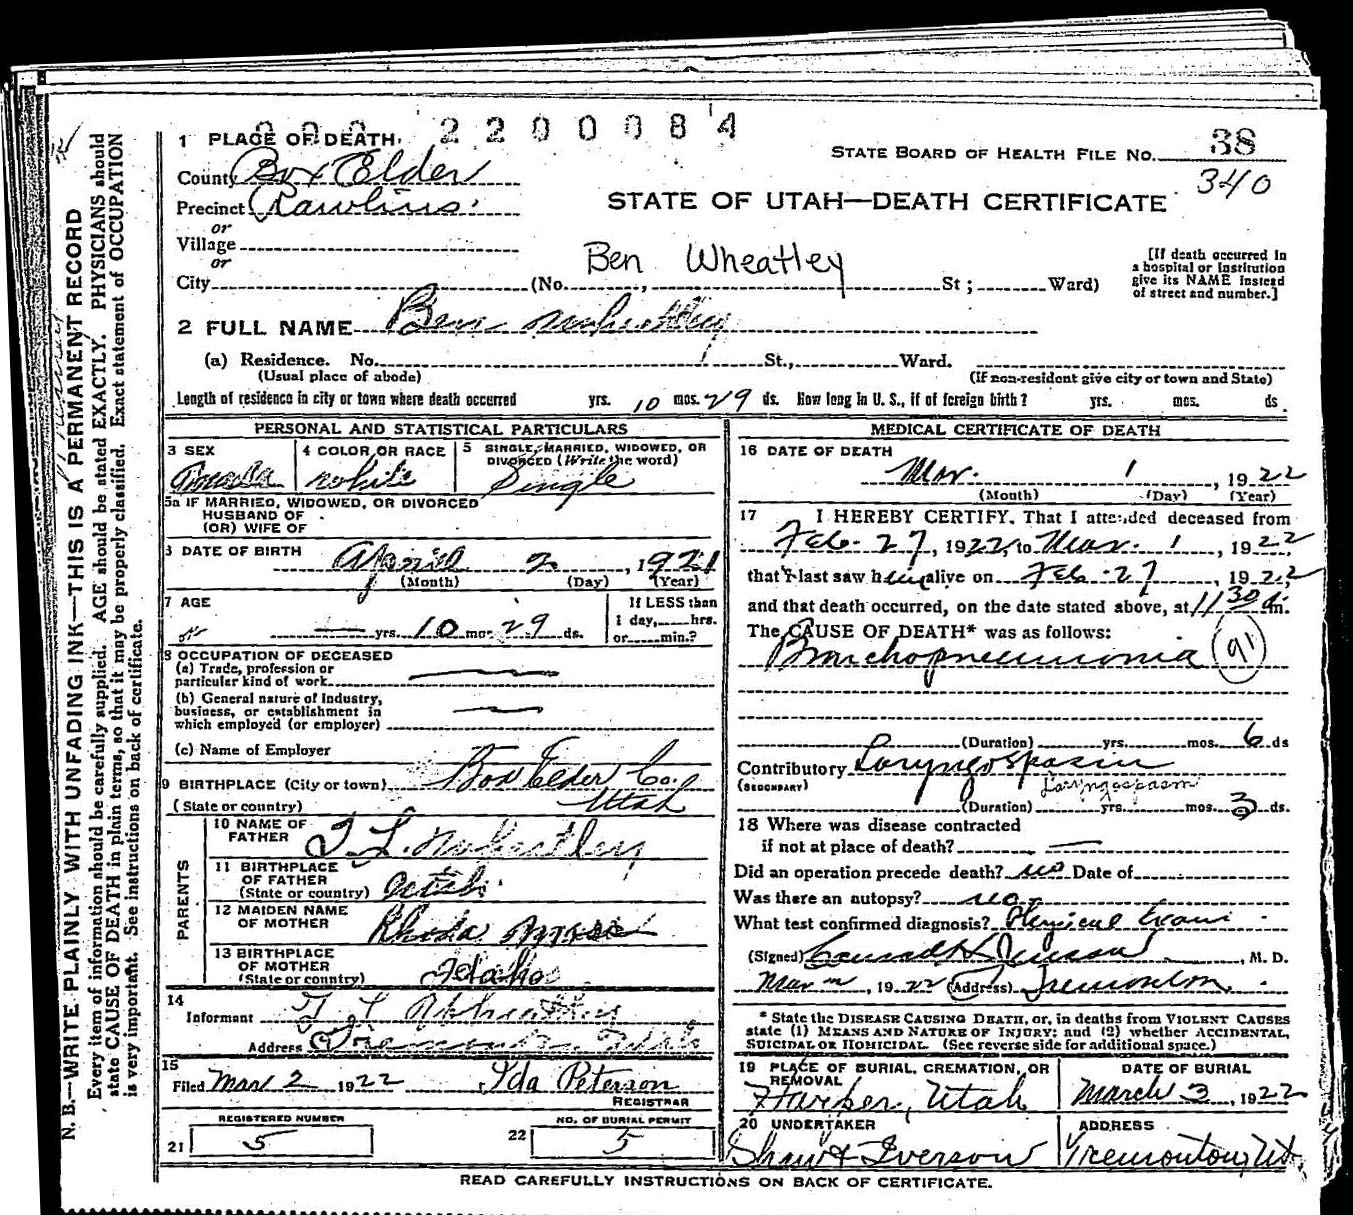 2200084
1 PLACE OF DEATH
STATE BOARD OF HEALTH FILE NO. 38
340
County Box Elder
Precinct Rawlins
STATE OF UTAH—DEATH CERTIFICATE
or
Village
or
Ben Wheatley
City (No. , St; Ward)
[If death occurred in
a hospital or institution
give its NAME instead
of street and number.]
2 FULL NAME Ben Wheatley
(a) Residence. No. St., Ward.
(Usual place of abode) (If non-resident give city or town and State)
Length of residence in city or town where death occurred yrs. 10 mos. 29 ds. How long in U. S., if of foreign birth? yrs. mos. ds.
PERSONAL AND STATISTICAL PARTICULARS
3 SEX 4 COLOR OR RACE 5 SINGLE, MARRIED, WIDOWED, OR
DIVORCED (Write the word)
white Single
5a IF MARRIED, WIDOWED, OR DIVORCED
HUSBAND OF
(OR) WIFE OF
DATE OF BIRTH April 2, 1921
(Month) (Day) (Year)
7 AGE If LESS than
1 day, hrs.
— yrs. 10 mos. 29 ds. or min.?
8 OCCUPATION OF DECEASED
(a) Trade, profession or
particular kind of work —
(b) General nature of Industry,
business, or establishment in —
which employed (or employer)
(c) Name of Employer
9 BIRTHPLACE (City or town) Box Elder Co.
(State or country) Utah
PARENTS
10 NAME OF
FATHER T. L. Wheatley
11 BIRTHPLACE
OF FATHER
(State or country) Utah
12 MAIDEN NAME
OF MOTHER Rhoda
13 BIRTHPLACE
OF MOTHER
(State or country) Idaho
14
Informant T L Wheatley
Address Tremonton Utah
15
Filed Mar 2 1922 Ida Peterson
REGISTRAR
REGISTERED NUMBER NO. OF BURIAL PERMIT
21 5 22 5
MEDICAL CERTIFICATE OF DEATH
16 DATE OF DEATH
Mar. 1, 1922
(Month) (Day) (Year)
17 I HEREBY CERTIFY, That I attended deceased from
Feb. 27, 1922, to Mar. 1, 1922
that I last saw him alive on Feb. 27, 1922
and that death occurred, on the date stated above, at 11 30 a m.
The CAUSE OF DEATH* was as follows:
Bronchopneumonia 91
(Duration) yrs. mos. 6 ds
Contributory Laryngospasm
(SECONDARY) Laryngospasm
(Duration) yrs. mos. 3 ds.
18 Where was disease contracted
if not at place of death? —
Did an operation precede death? no Date of
Was there an autopsy? no
What test confirmed diagnosis? Physical Exam
(Signed) , M. D.
Mar , 1922 (Address) Tremonton
* State the DISEASE CAUSING DEATH, or, in deaths from VIOLENT CAUSES
state (1) MEANS AND NATURE OF INJURY; and (2) whether ACCIDENTAL,
SUICIDAL OR HOMICIDAL. (See reverse side for additional space.)
19 PLACE OF BURIAL, CREMATION, OR
REMOVAL
Harper, Utah
DATE OF BURIAL
March 3, 1922
20 UNDERTAKER
Shaw & Iverson
ADDRESS
Tremonton, Ut.
READ CAREFULLY INSTRUCTIONS ON BACK OF CERTIFICATE.
N. B.—WRITE PLAINLY, WITH UNFADING INK—THIS IS A PERMANENT RECORD
Every item of information should be carefully supplied. AGE should be stated EXACTLY. PHYSICIANS should
state CAUSE OF DEATH in plain terms, so that it may be properly classified. Exact statement of OCCUPATION
is very important. See instructions on back of certificate.